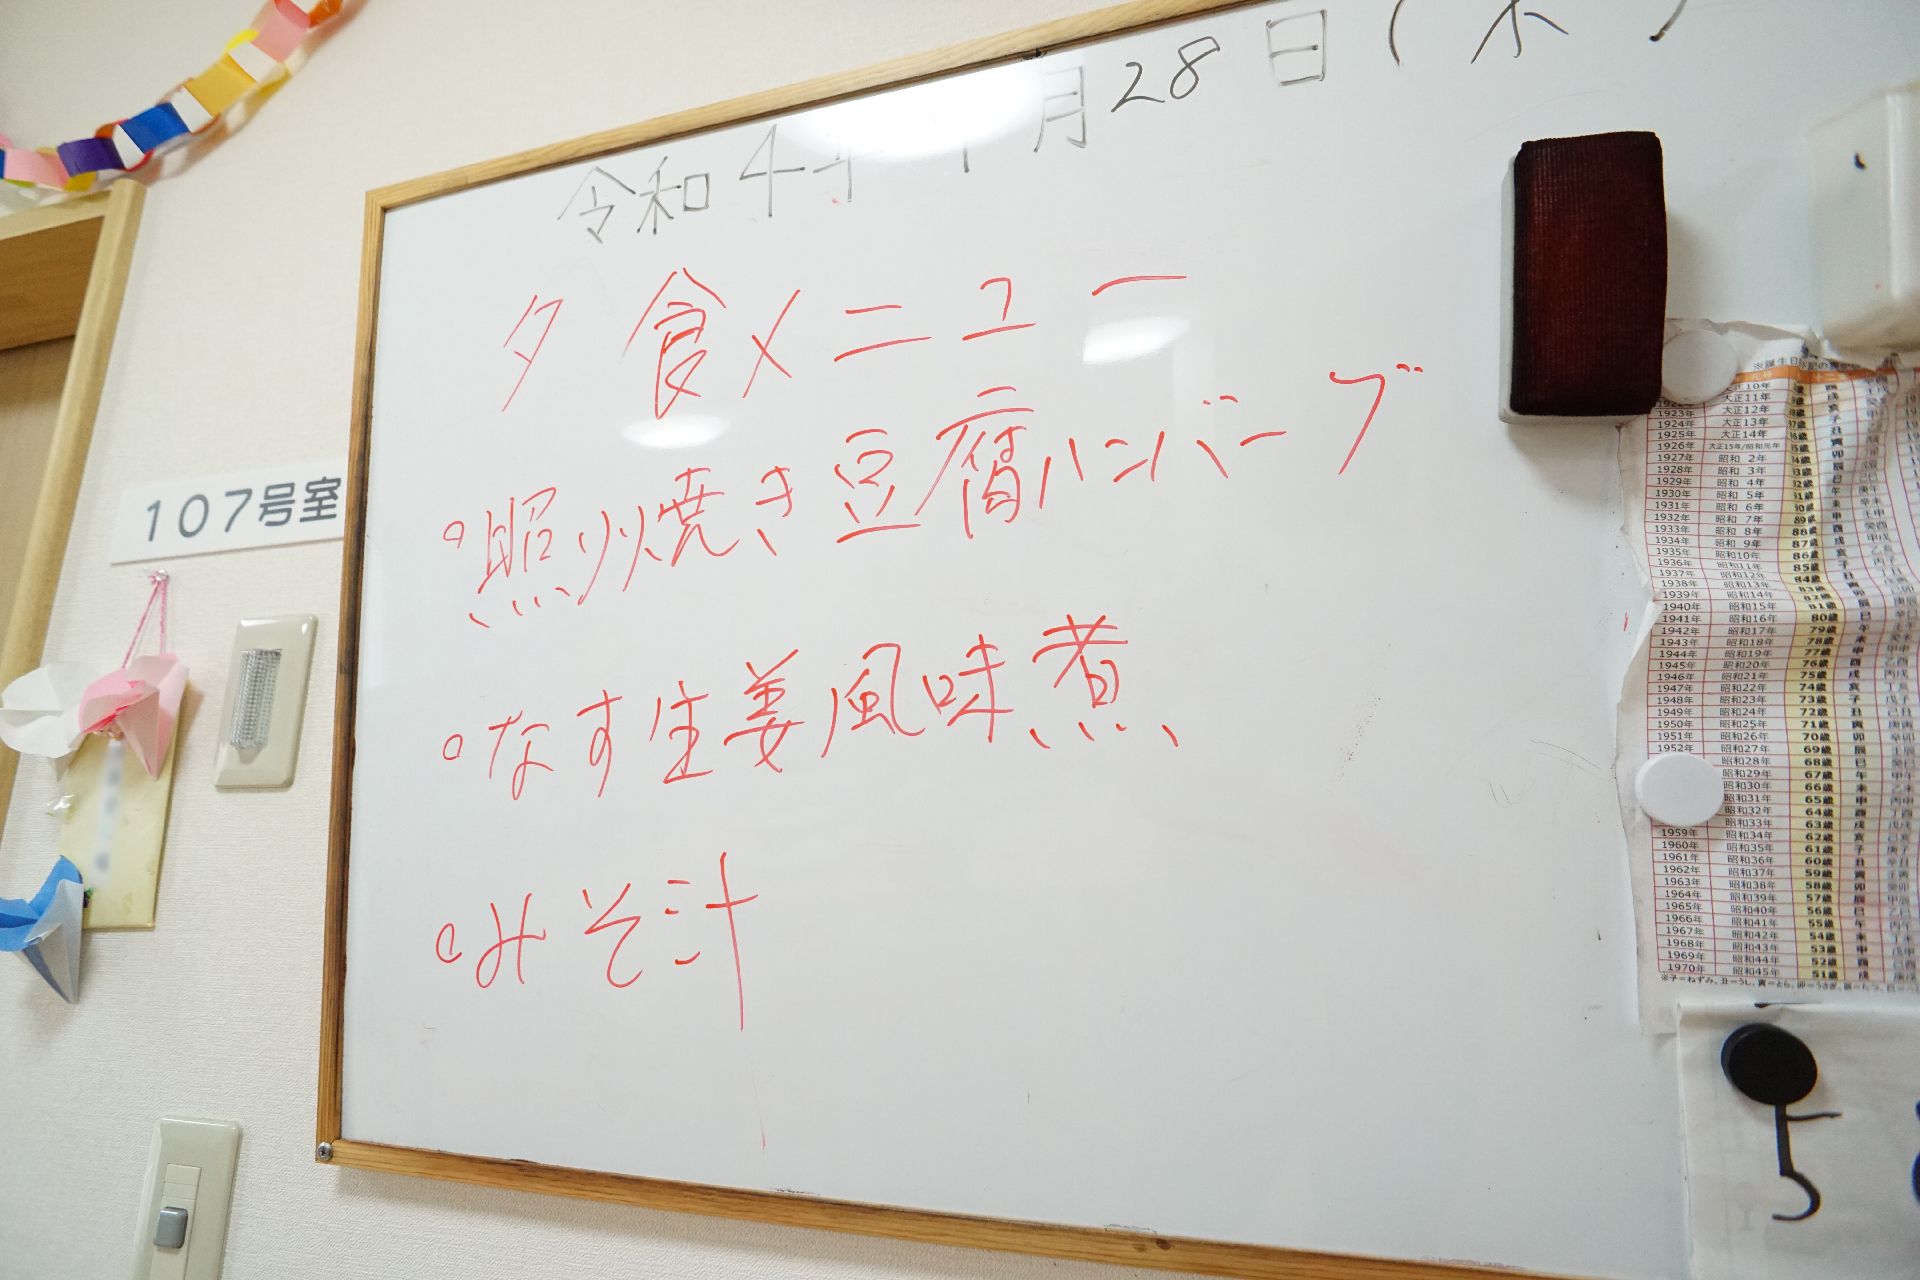 令和4年7月28日(木)
夕食メニュー
照り焼き豆腐ハンバーグ
なす生姜風味煮
みそ汁
107号室
大正10年
大正11年
1923年 大正12年
1924年 大正13年
1925年 大正14年
1926年 大正15年/昭和元年
1927年 昭和 2年
1928年 昭和 3年
1929年 昭和 4年
1930年 昭和 5年
1931年 昭和 6年
1932年 昭和 7年 89歳 申
1933年 昭和 8年 88歳 酉
1934年 昭和 9年 87歳 戌
1935年 昭和10年 86歳 亥
1936年 昭和11年 85歳 子
1937年 昭和12年 84歳 丑
1938年 昭和13年 83歳
1939年 昭和14年 82歳 卯
1940年 昭和15年 81歳 辰
1941年 昭和16年 80歳 巳
1942年 昭和17年 79歳 午
1943年 昭和18年 78歳 未
1944年 昭和19年 77歳 申
1945年 昭和20年 76歳 酉
1946年 昭和21年 75歳 戌
1947年 昭和22年 74歳 亥
1948年 昭和23年 73歳 子
1949年 昭和24年 72歳 丑
1950年 昭和25年 71歳 寅
1951年 昭和26年 70歳 卯
1952年 昭和27年 69歳 辰
昭和28年 68歳 巳
昭和29年 67歳 午
昭和30年 66歳 未
昭和31年 65歳 申
昭和32年 64歳 酉
昭和33年 63歳 戌
1959年 昭和34年 62歳 亥
1960年 昭和35年 61歳 子
1961年 昭和36年 60歳 丑
1962年 昭和37年 59歳 寅
1963年 昭和38年 58歳 卯
1964年 昭和39年 57歳 辰
1965年 昭和40年 56歳 巳
1966年 昭和41年 55歳 午
1967年 昭和42年 54歳 未
1968年 昭和43年 53歳 申
1969年 昭和44年 52歳 酉
1970年 昭和45年 51歳 戌